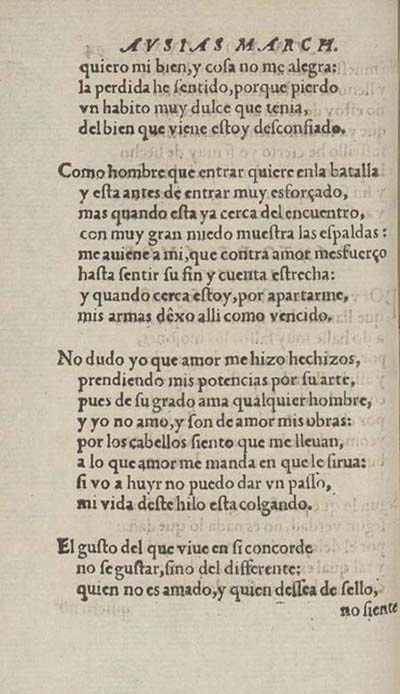 AVSIAS MARCH.
quiero mi bien, y cosa no me alegra:
la perdida he sentido, porque pierdo
vn habito muy dulce que tenia,
del bien que viene estoy desconfiado.
Como hombre que entrar quiere enla batalla
y esta antes de entrar muy esforçado,
mas quando esta ya cerca del encuentro,
con muy gran miedo muestra las espaldas:
me auiene a mi, que contra amor mesfuerço
hasta sentir su fin y cuenta estrecha:
y quando cerca estoy, por apartarme,
mis armas dêxo alli como vencido.
No dudo yo que amor me hizo hechizos,
prendiendo mis potencias por su arte,
pues de su grado ama qualquier hombre,
y yo no amo, y son de amor mis obras:
por los cabellos siento que me lleuan,
a lo que amor me manda en que le sirua:
si vo a huyr no puedo dar vn passo,
mi vida deste hilo esta colgando.
El gusto del que viue en si concorde
no se gustar, sino del differente:
quien no es amado, y quien dessea de sello,
no siente